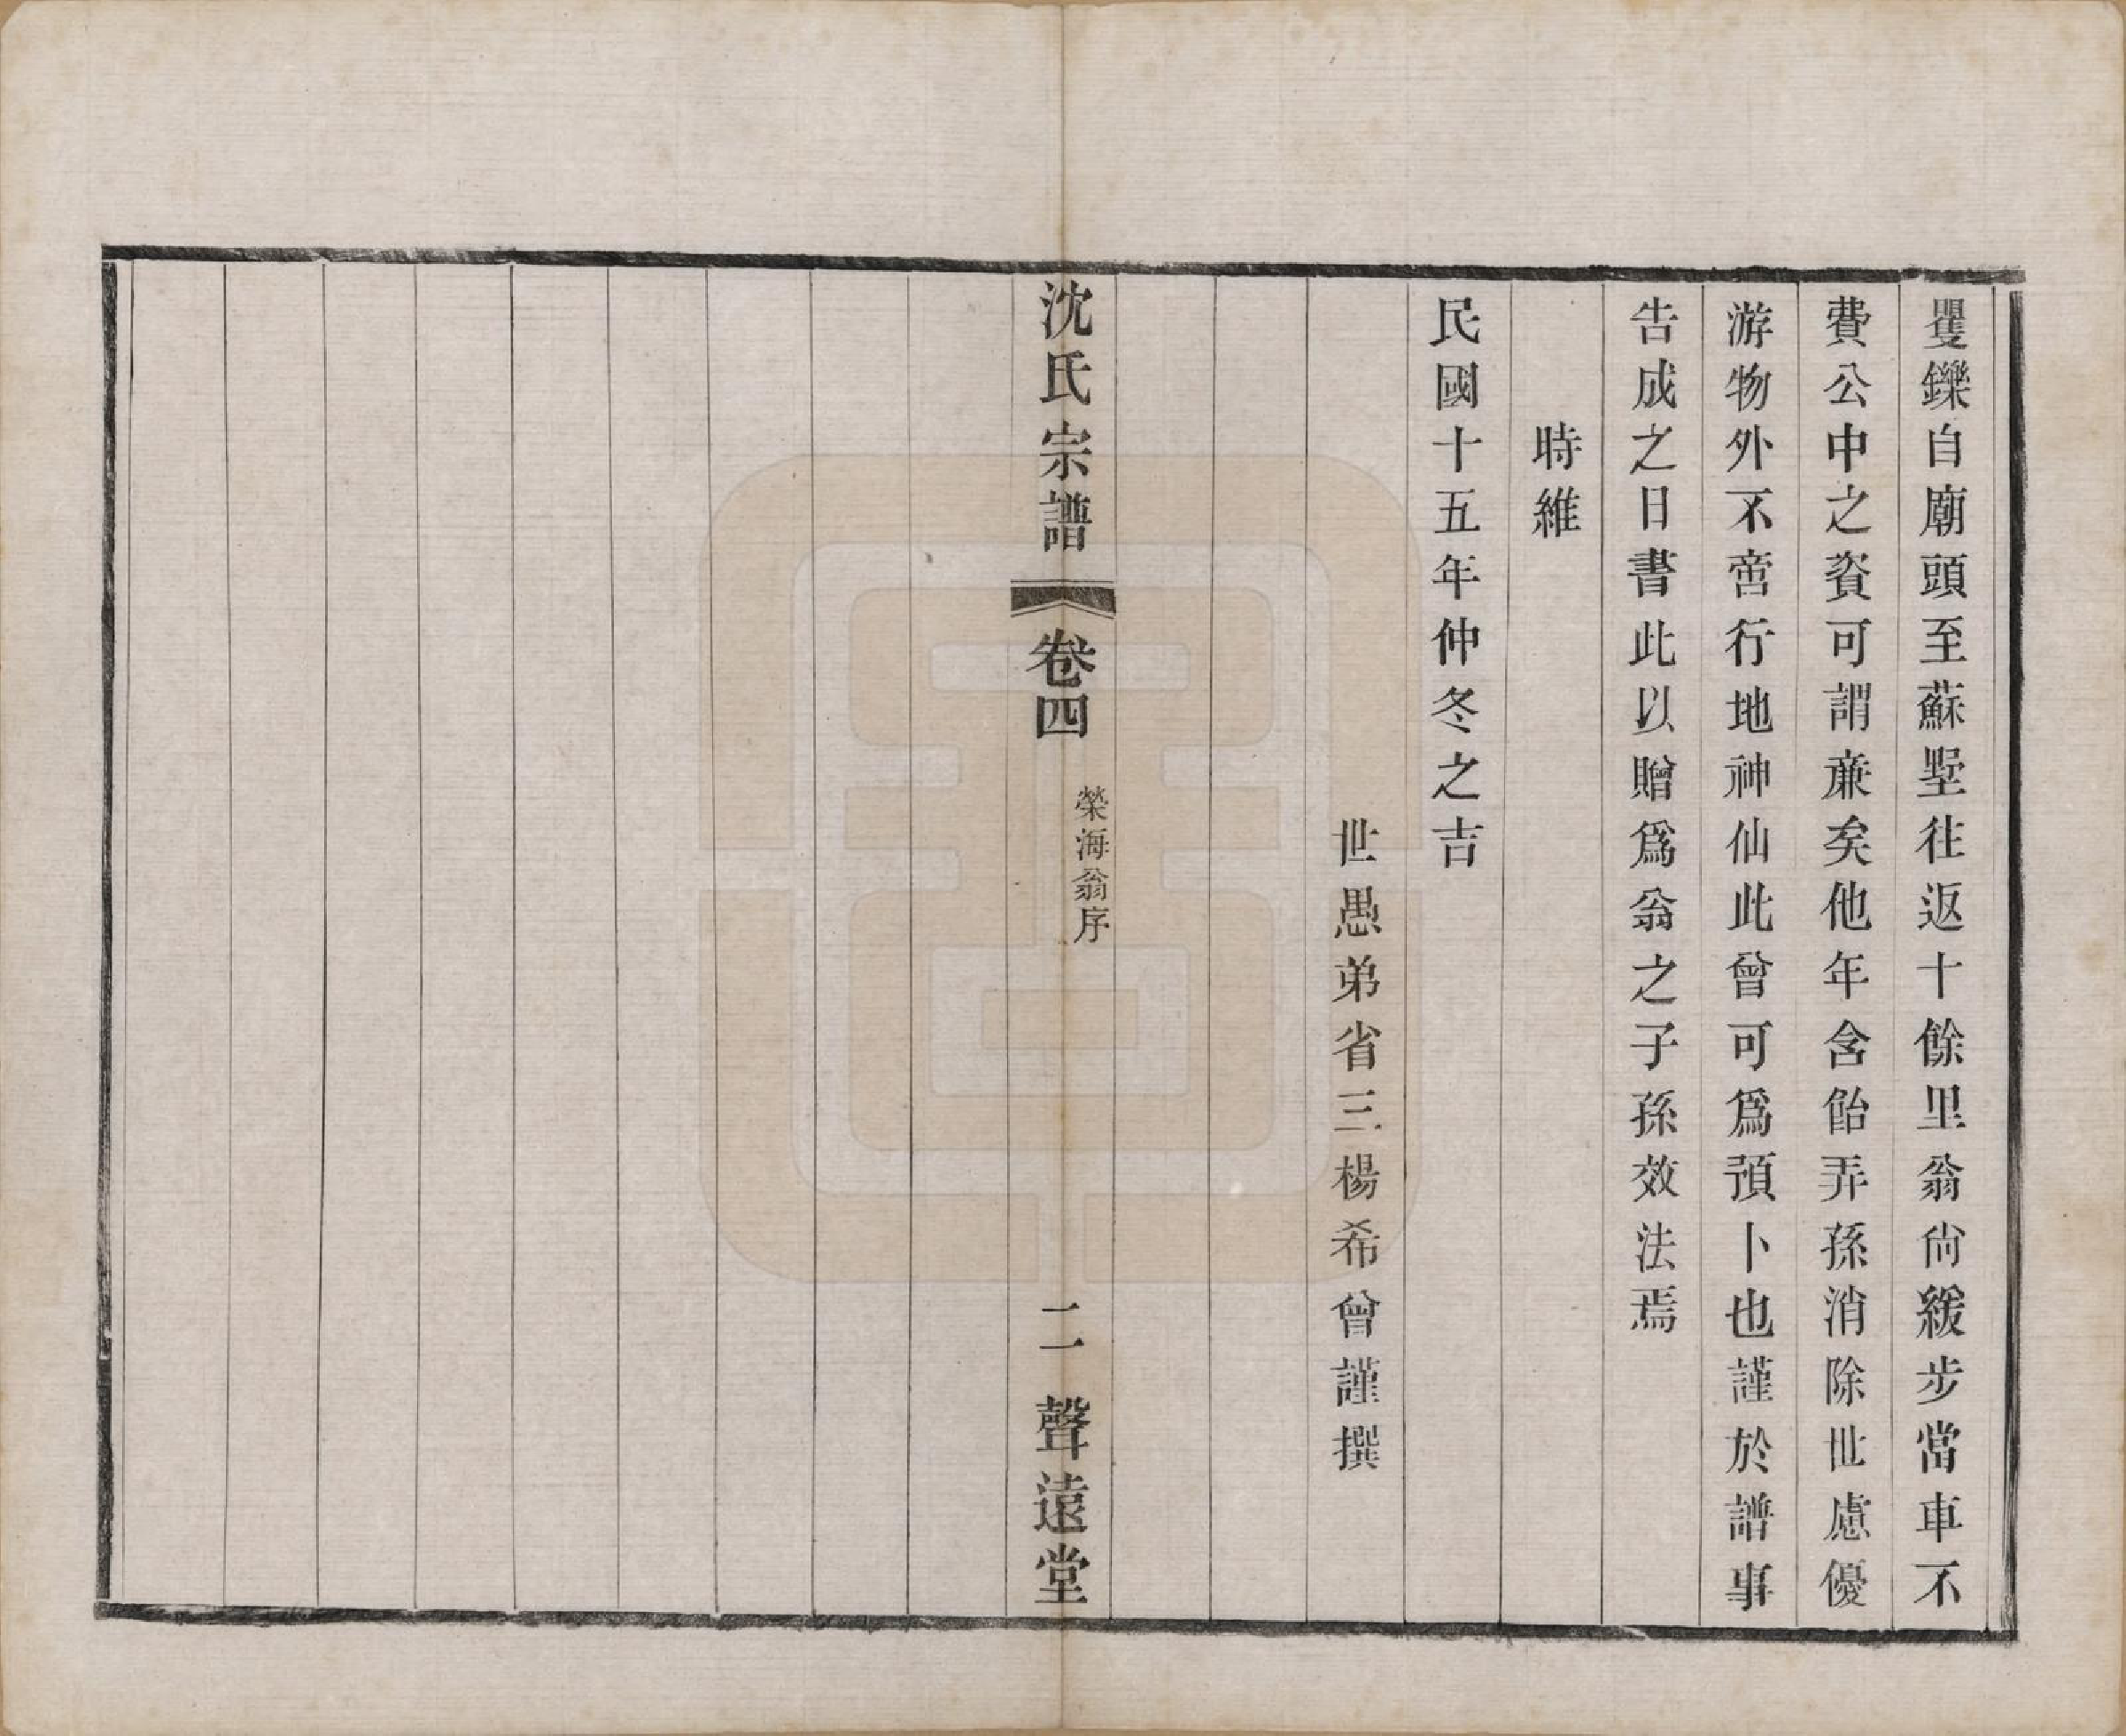 矍鑠自廟頭至蘇墅往返十餘里翁尙緩步當車不
費公中之資可謂亷矣他年含飴弄孫消除世慮優
游物外不啻行地神仙此曾可爲預卜也謹於譜事
告成之日書此以贈爲翁之子孫效法焉
時維
民國十五年仲冬之吉
世愚弟省三楊希曾謹撰
沈氏宗譜
卷四
榮海翁序
二
聲遠堂